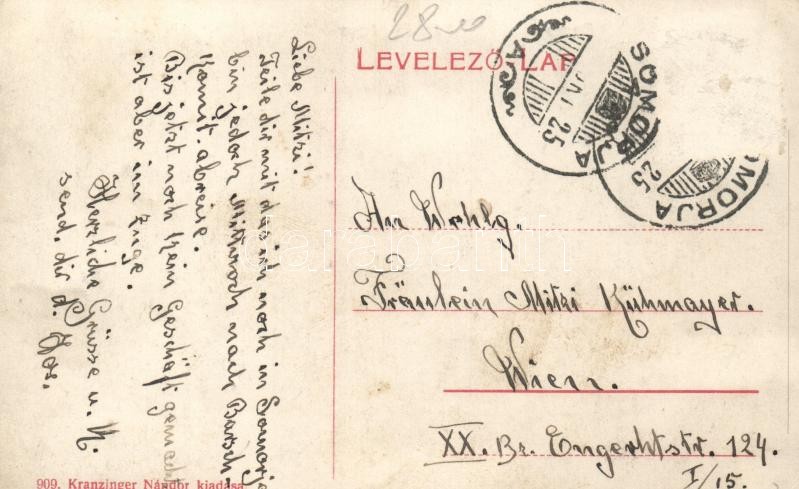 28-
LEVELEZŐ LAP
SOMORJA
25
SOMORJA
25
Liebe Mitzi!
Teile dir mit das ich noch in Somorja
bin jedoch Mittwoch nach Bartsch-
Komit. abreise.
Bis jetzt noch kein Geschäft gemacht
ist aber im Zuge.
Herzliche Grüsse u. K.
send. dir d.
An Wohlg.
Fräulein Mitzi Kühmayer.
Wien.
XX. Bz. Engerthstr. 124.
I/15.
909. Kranzinger Nándor kiadása
darabanth